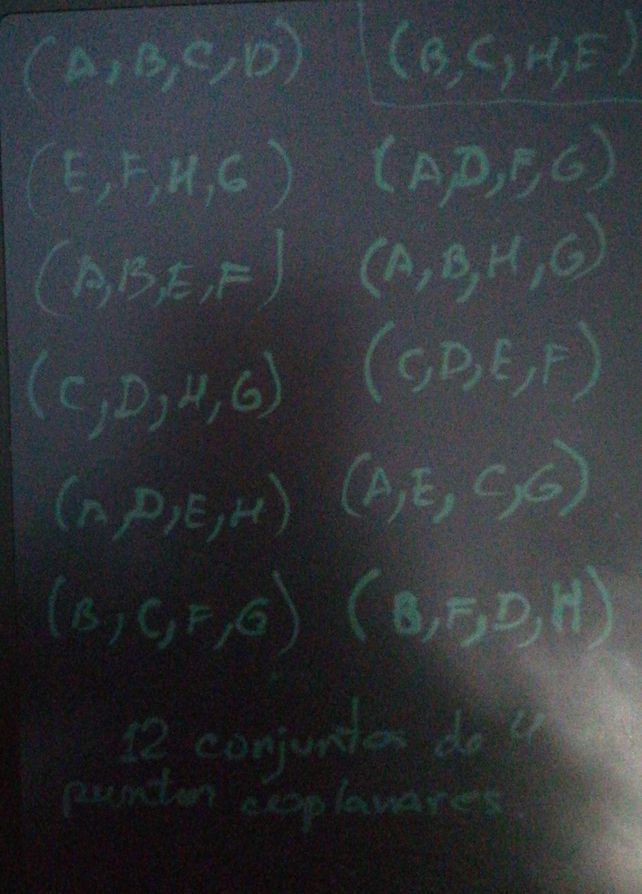 (A,B,C,D) (B,C,H,E)
(E,F,H,G) (A,D,F,G)
(A,B,E,F) (A,B,H,G)
(C,D,H,G) (C,D,E,F)
(A,D,E,H) (A,E,C,G)
(B,C,F,G) (B,F,D,H)
12 conjuntos de 4
puntos coplanares.